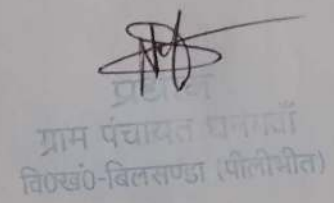 प्रधान
ग्राम पंचायत घनगवाँ
वि0खं0-बिलसण्डा (पीलीभीत)